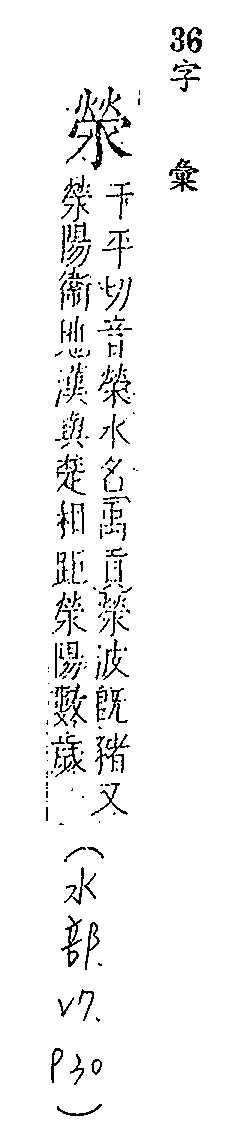 36
字彙
滎
于平切音榮水名禹貢滎波既豬又
滎陽衞地漢與楚相距滎陽數歲
(水部. V7. P30)